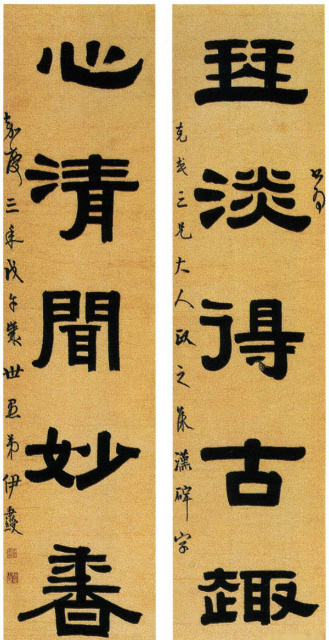 珡淡得古趣
三兄大人政之集漢碑字
心清聞妙香
嘉慶三年戊午世愚弟伊